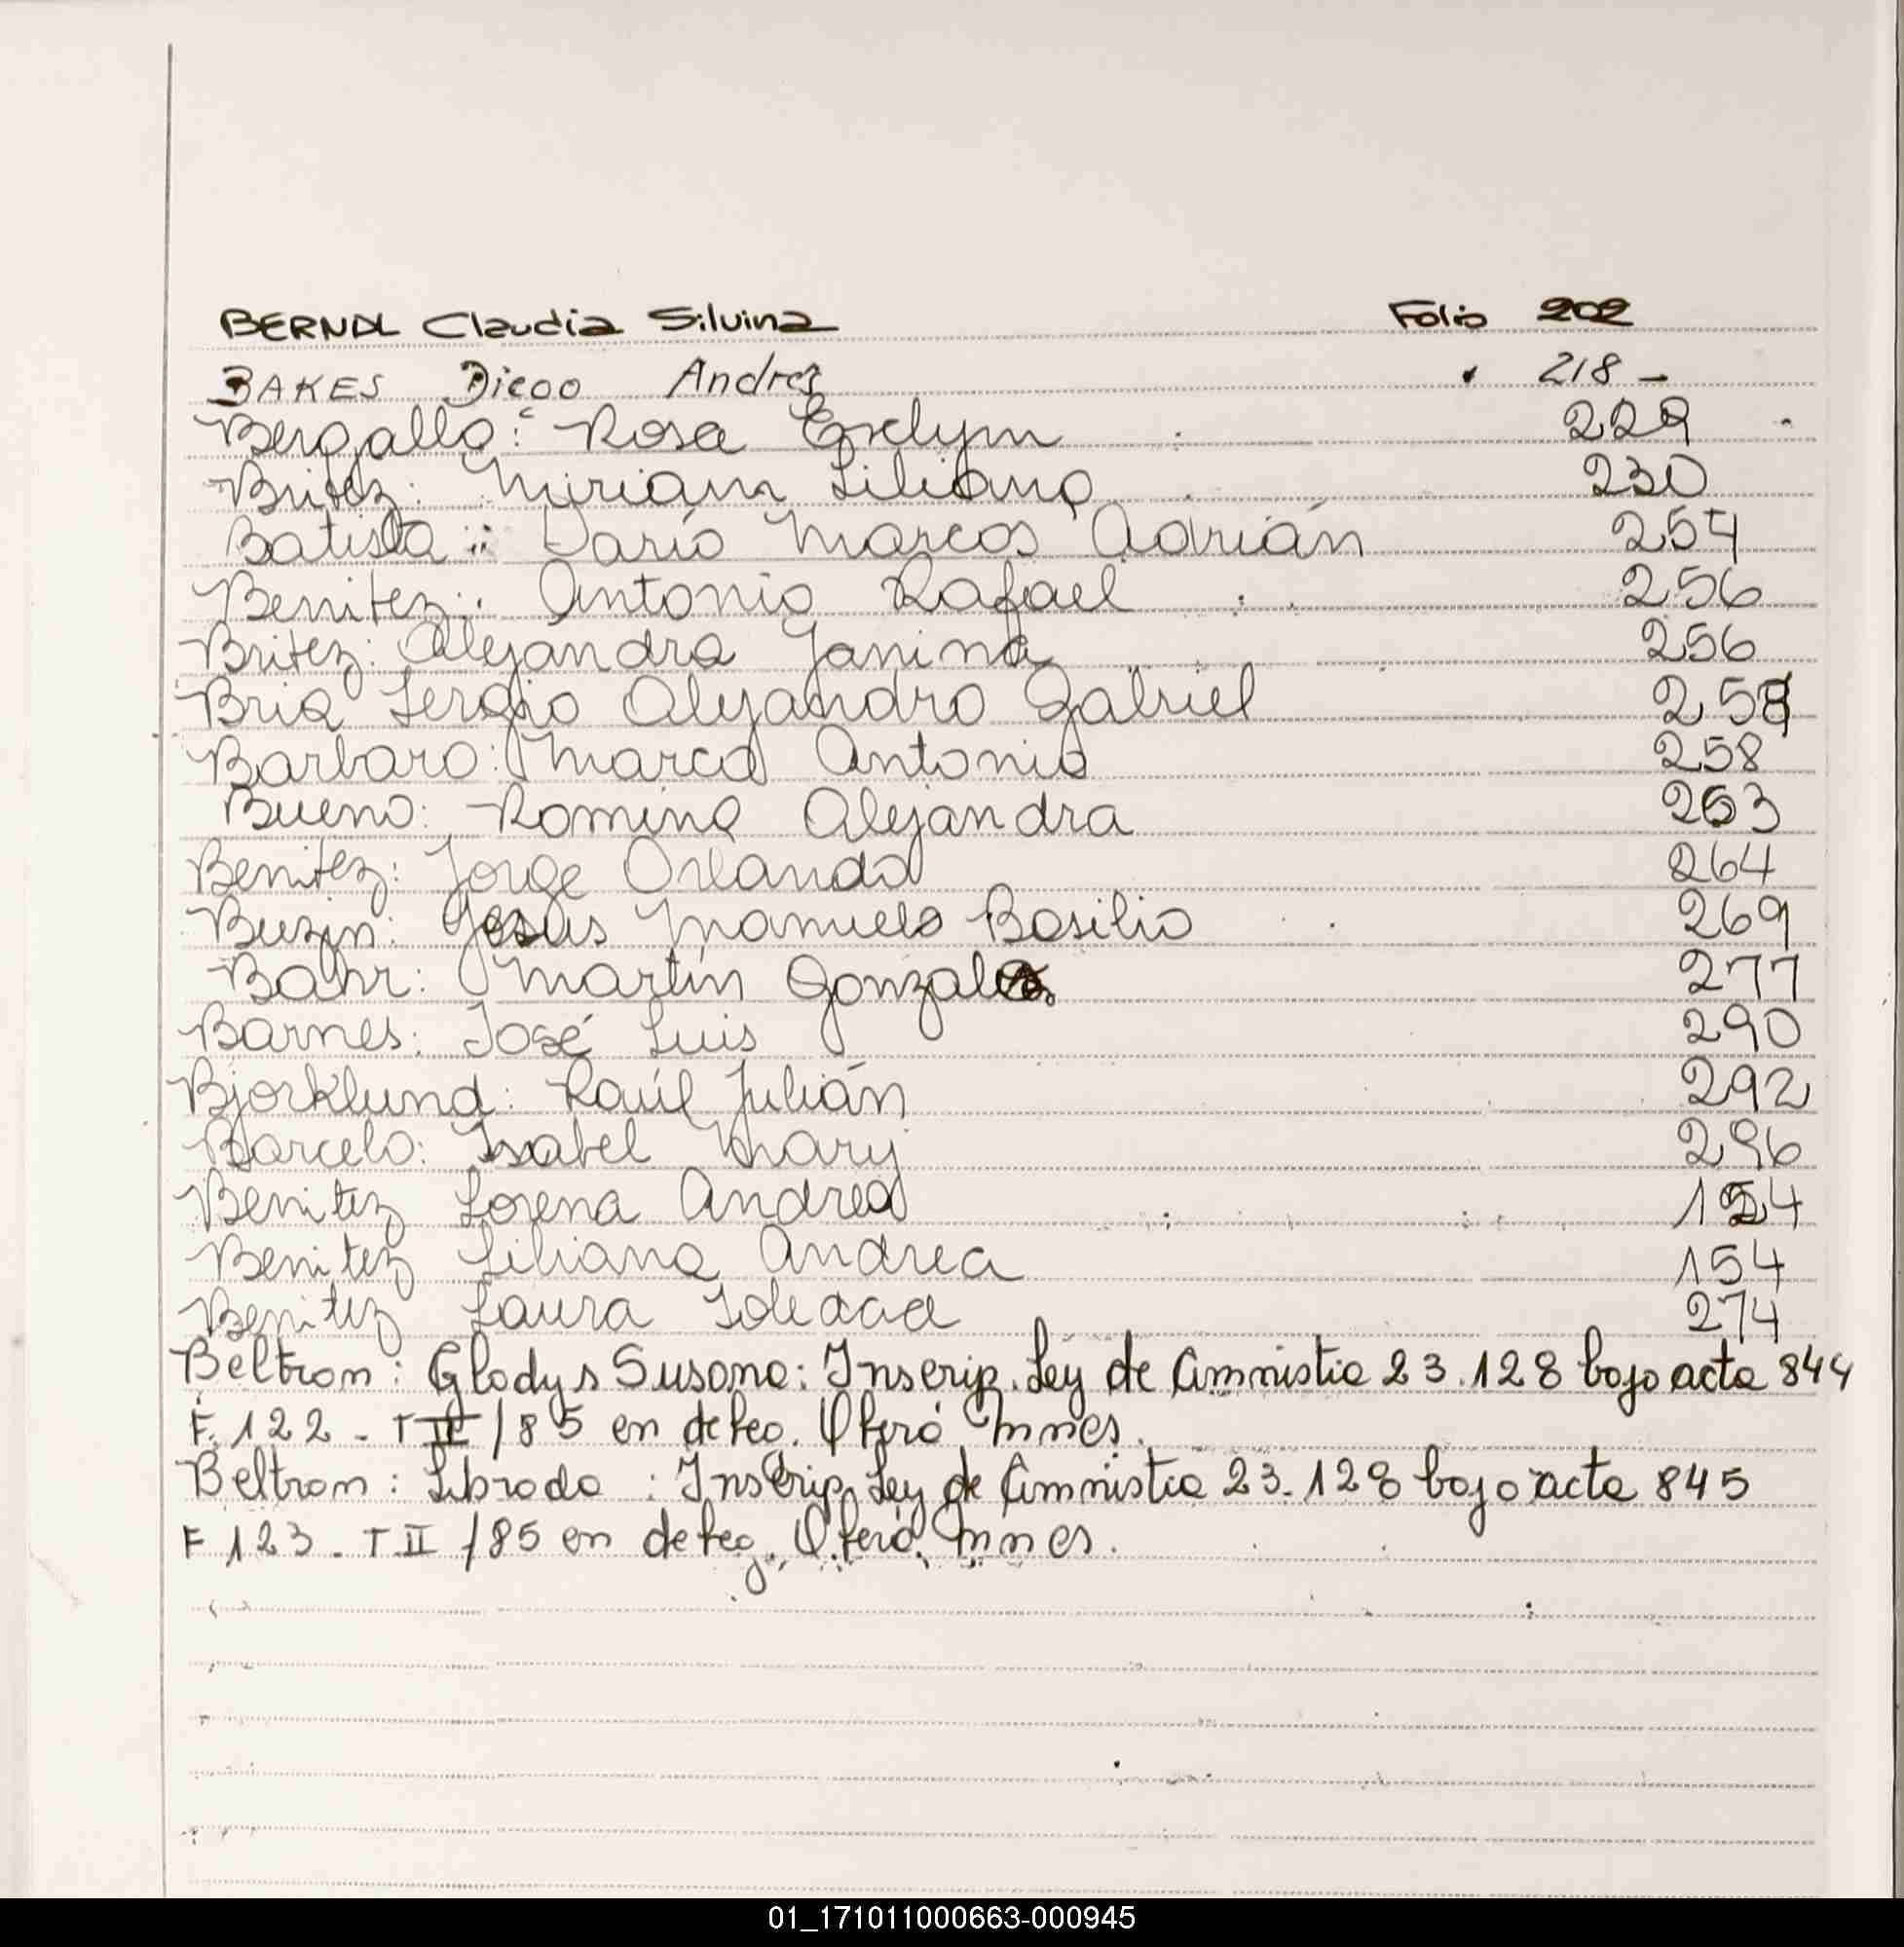 BERNDL Claudia Silvina Folio 202
BAKES Diego Andres " 218 -
Bergallo: Rosa Evelym 229
Britez: Miriam Liliana 230
Batista: Darío Marcos Adrián 254
Benitez: Antonio Rafael 256
Britez: Alejandra Janina 256
Bria Sergio Alejandro Gabriel 258
Barbaro: Marco Antonio 258
Bueno: Romina Alejandra 263
Benitez: Jorge Orlando 264
Buzin: Jesus Manuelo Basilio 269
Bahr: Martín Gonzalo 277
Barnes: José Luis 290
Bjorklund: Raúl Julián 292
Barcelo: Isabel Mary 296
Benitez Lorena Andrea 154
Benitez Liliana Andrea 154
Benitez Laura Soledad 274
Beltran: Gladys Susana: Inscrip. Ley de Amnistia 23.128 bajo acta 844
F. 122 - T II /85 en deleg. Oberá Mnes.
Beltran: Librada: Inscrip. Ley de Amnistia 23.128 bajo acta 845
F 123 - T II /85 en deleg. Oberá Mnes.
01_171011000663-000945